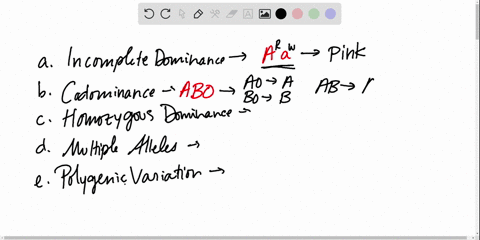 a. Incomplete Dominance → AᴿaW → Pink
b. Codominance → ABO → AO → A AB →
BO → B
c. Homozygous Dominance →
d. Multiple Alleles →
e. Polygenic Variation →